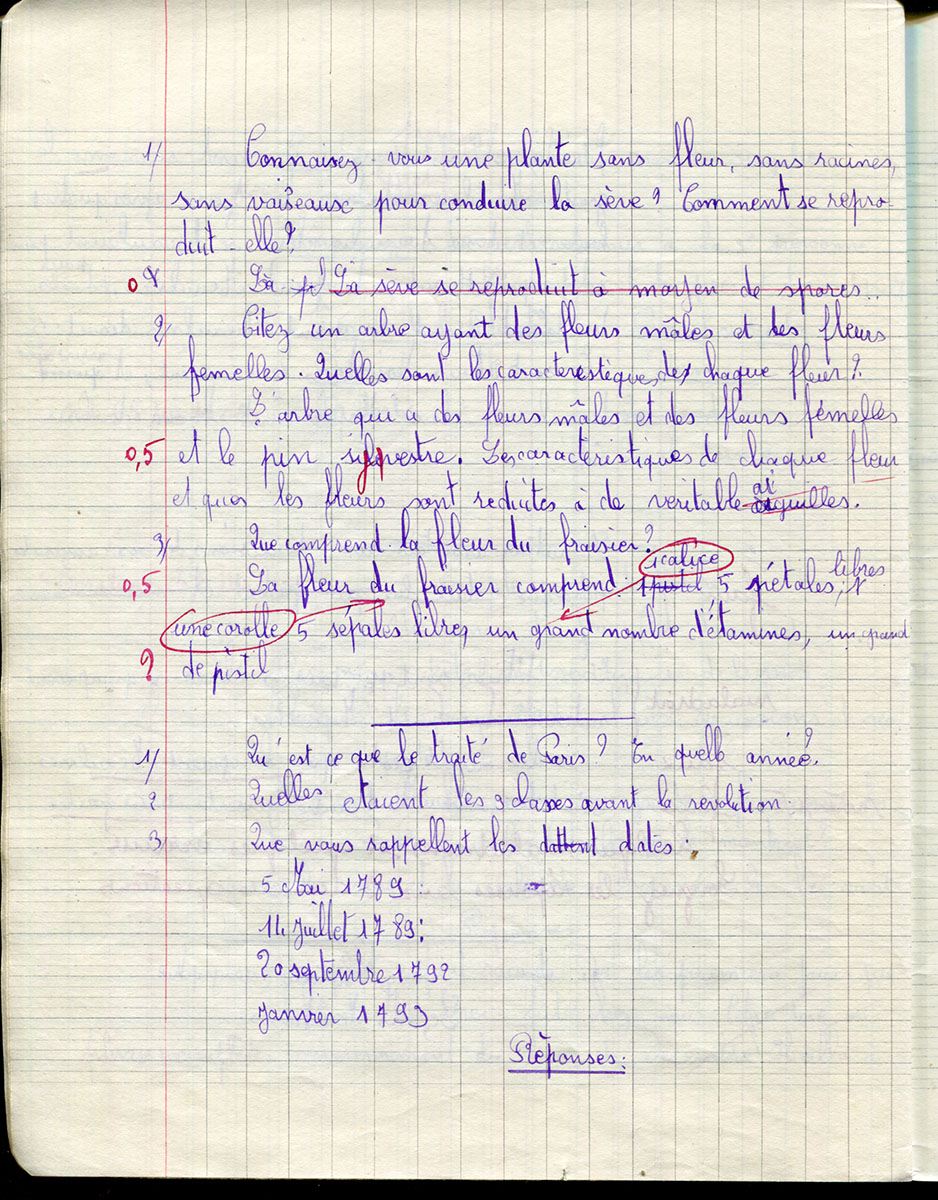 1/ Connaisez-vous une plante sans fleur, sans racines,
sans vaiseaux pour conduire la sève? Comment se repro-
duit-elle?
0 Là La sève se reproduit à moyen de spores..
2/ Citez un arbre ayant des fleurs mâles et des fleurs
femelles. Quelles sont les caracterestique de chaque fleur?
L'arbre qui a des fleurs mâles et des fleurs fémelles
0,5 et le pin sylvestre. Les caractéristiques de chaque fleur
et que les fleurs sont reduites à de veritable aiguilles.
3/ Que comprend la fleur du fraisier?
1 calice
0,5 La fleur du fraisier comprend: 5 pétales libres, 1
une corolle 5 sépales libres, un grand nombre d'étamines, un grand
? de pistil
1/ Qu'est ce que le traité de Paris? En quelle année?
2 Quelles étaient les 3 classes avant la revolution.
3 Que vous rappellent les dattent dates:
5 Mai 1789:
14 Juillet 1789:
20 septembre 1792
Janvier 1793
Réponses: